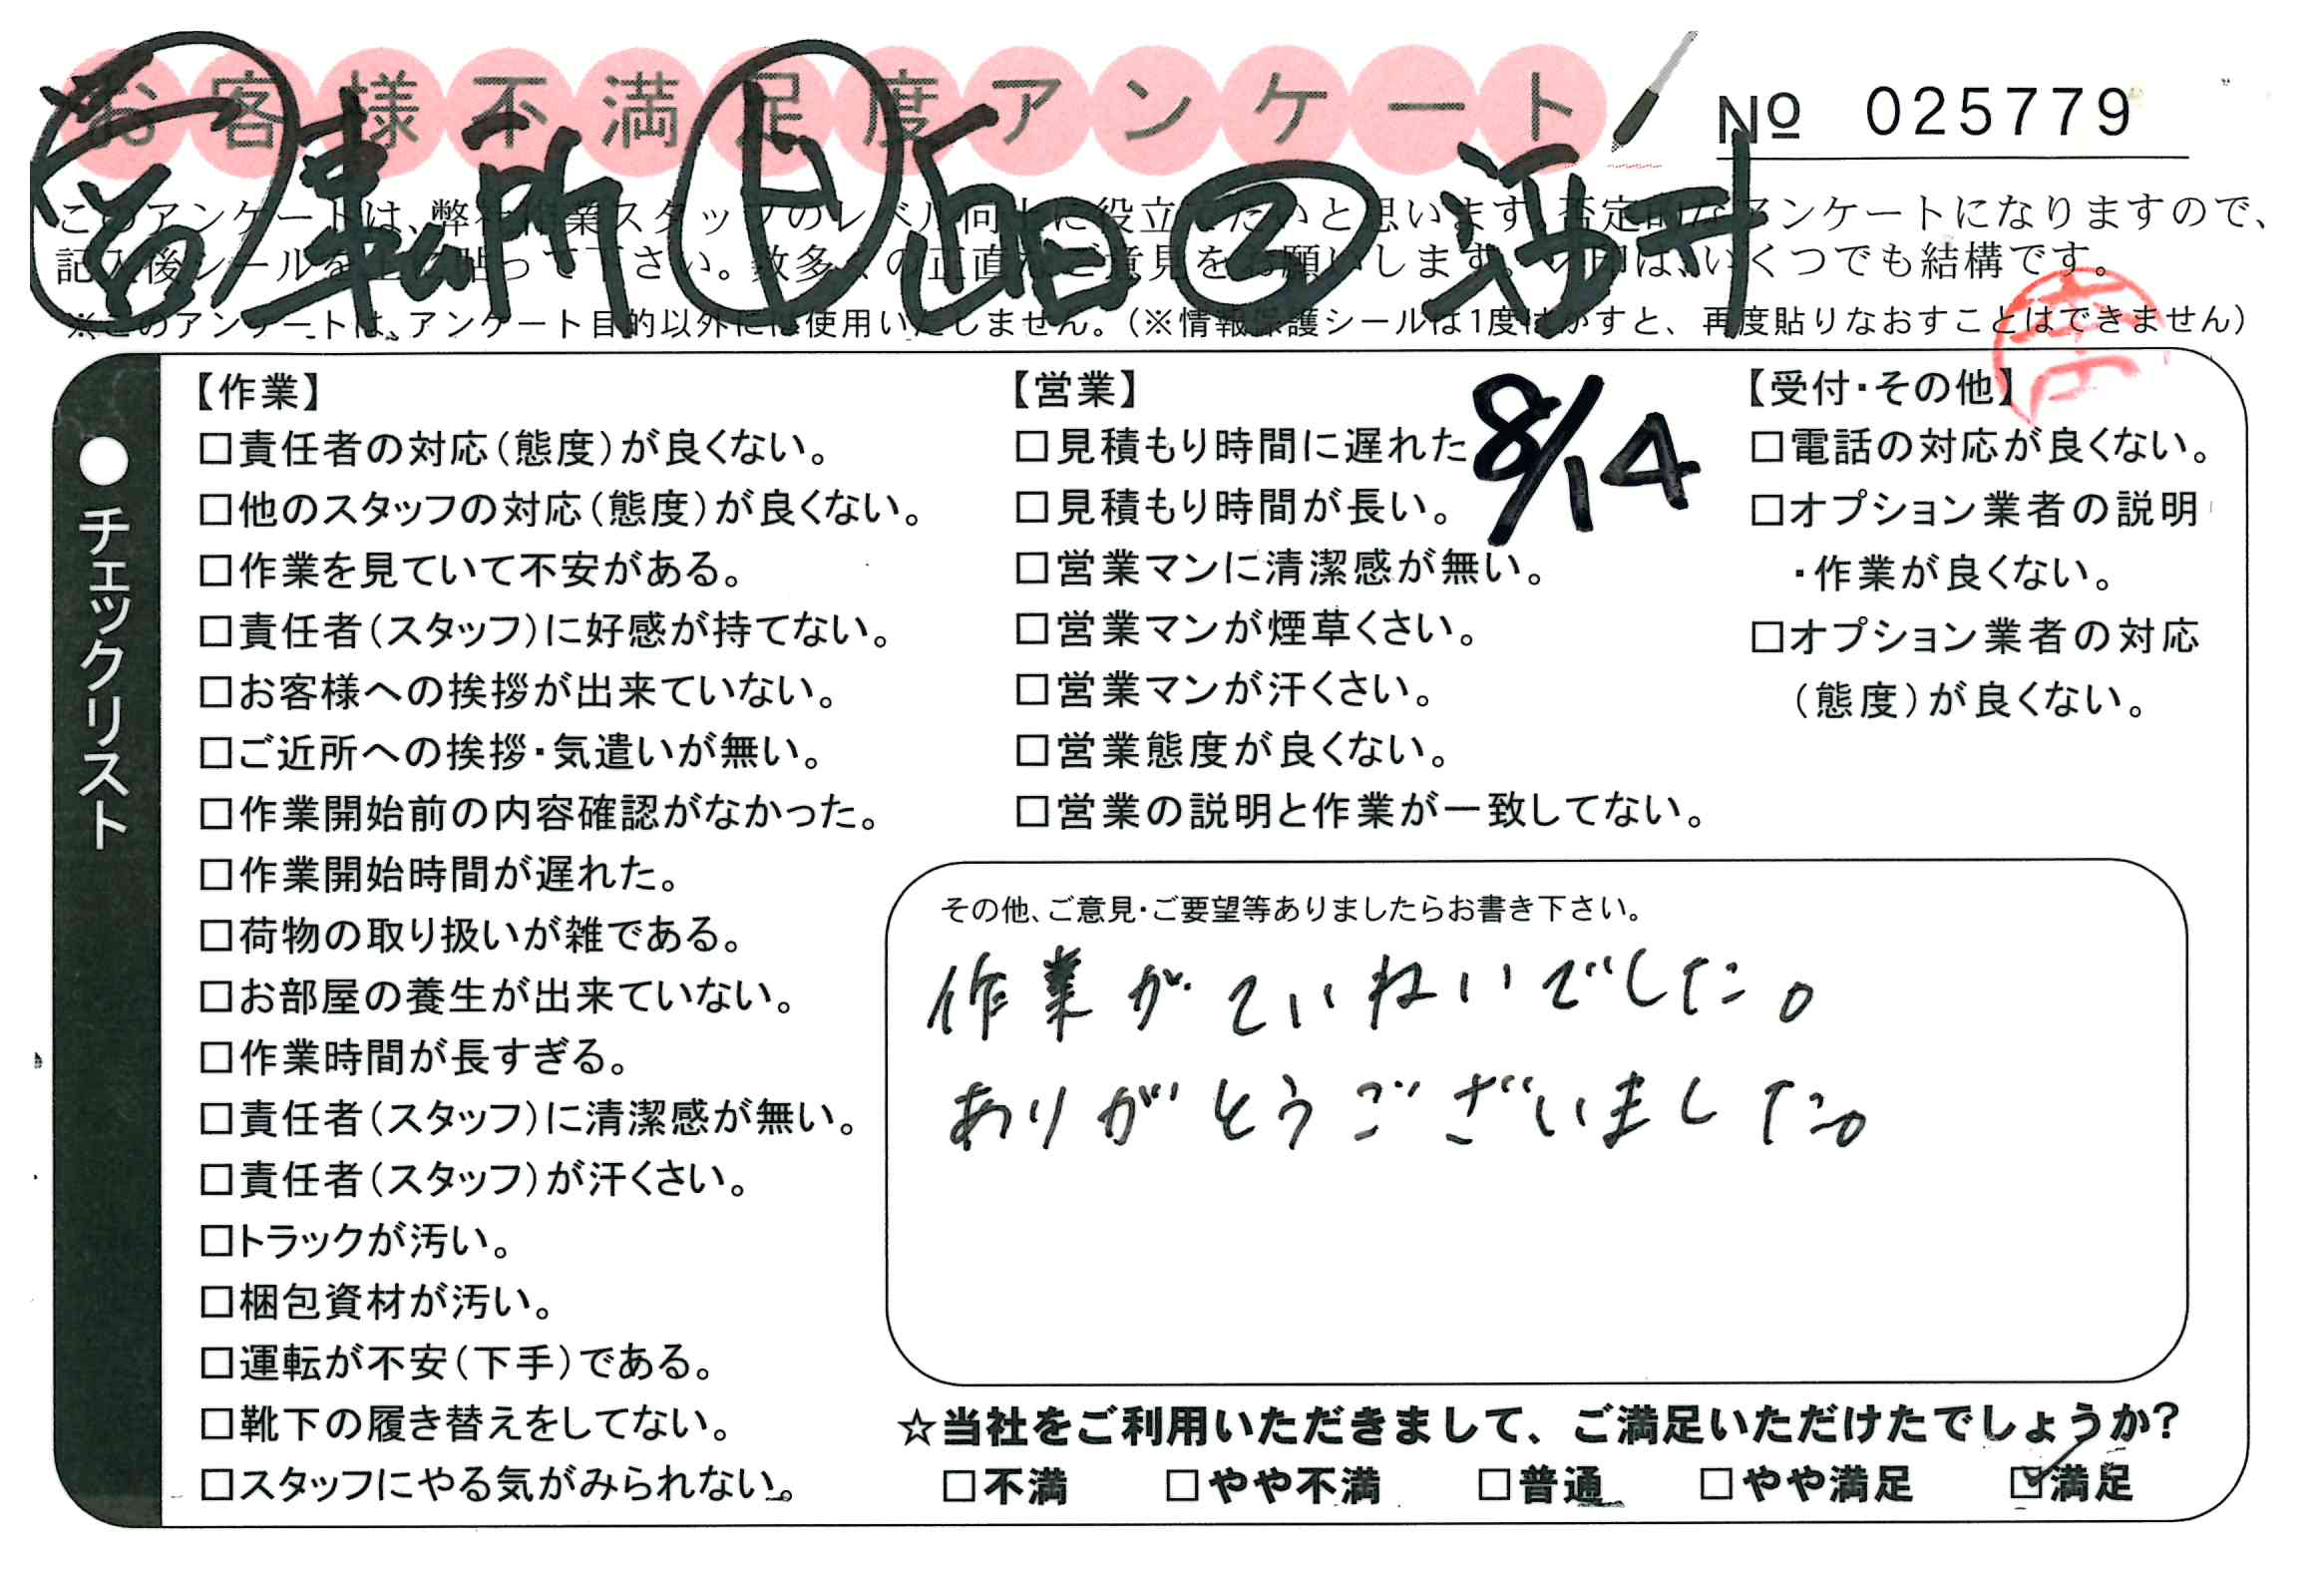 お客様不満足度アンケート
№ 025779
このアンケートは、弊社作業スタッフのレベル向上に役立てたいと思います。否定的なアンケートになりますので、
記入後シールを上に貼って下さい。数多くの正直なご意見をお願いします。レ印は、いくつでも結構です。
※このアンケートは、アンケート目的以外には使用いたしません。（※情報保護シールは1度はがすと、再度貼りなおすことはできません）
●チェックリスト
【作業】
□責任者の対応（態度）が良くない。
□他のスタッフの対応（態度）が良くない。
□作業を見ていて不安がある。
□責任者（スタッフ）に好感が持てない。
□お客様への挨拶が出来ていない。
□ご近所への挨拶・気遣いが無い。
□作業開始前の内容確認がなかった。
□作業開始時間が遅れた。
□荷物の取り扱いが雑である。
□お部屋の養生が出来ていない。
□作業時間が長すぎる。
□責任者（スタッフ）に清潔感が無い。
□責任者（スタッフ）が汗くさい。
□トラックが汚い。
□梱包資材が汚い。
□運転が不安（下手）である。
□靴下の履き替えをしてない。
□スタッフにやる気がみられない。
【営業】
8/14
□見積もり時間に遅れた
□見積もり時間が長い。
□営業マンに清潔感が無い。
□営業マンが煙草くさい。
□営業マンが汗くさい。
□営業態度が良くない。
□営業の説明と作業が一致してない。
【受付・その他】
□電話の対応が良くない。
□オプション業者の説明
・作業が良くない。
□オプション業者の対応
（態度）が良くない。
その他、ご意見・ご要望等ありましたらお書き下さい。
作業がていねいでした。
ありがとうございました。
☆当社をご利用いただきまして、ご満足いただけたでしょうか?
□不満 □やや不満 □普通 □やや満足 ☑満足